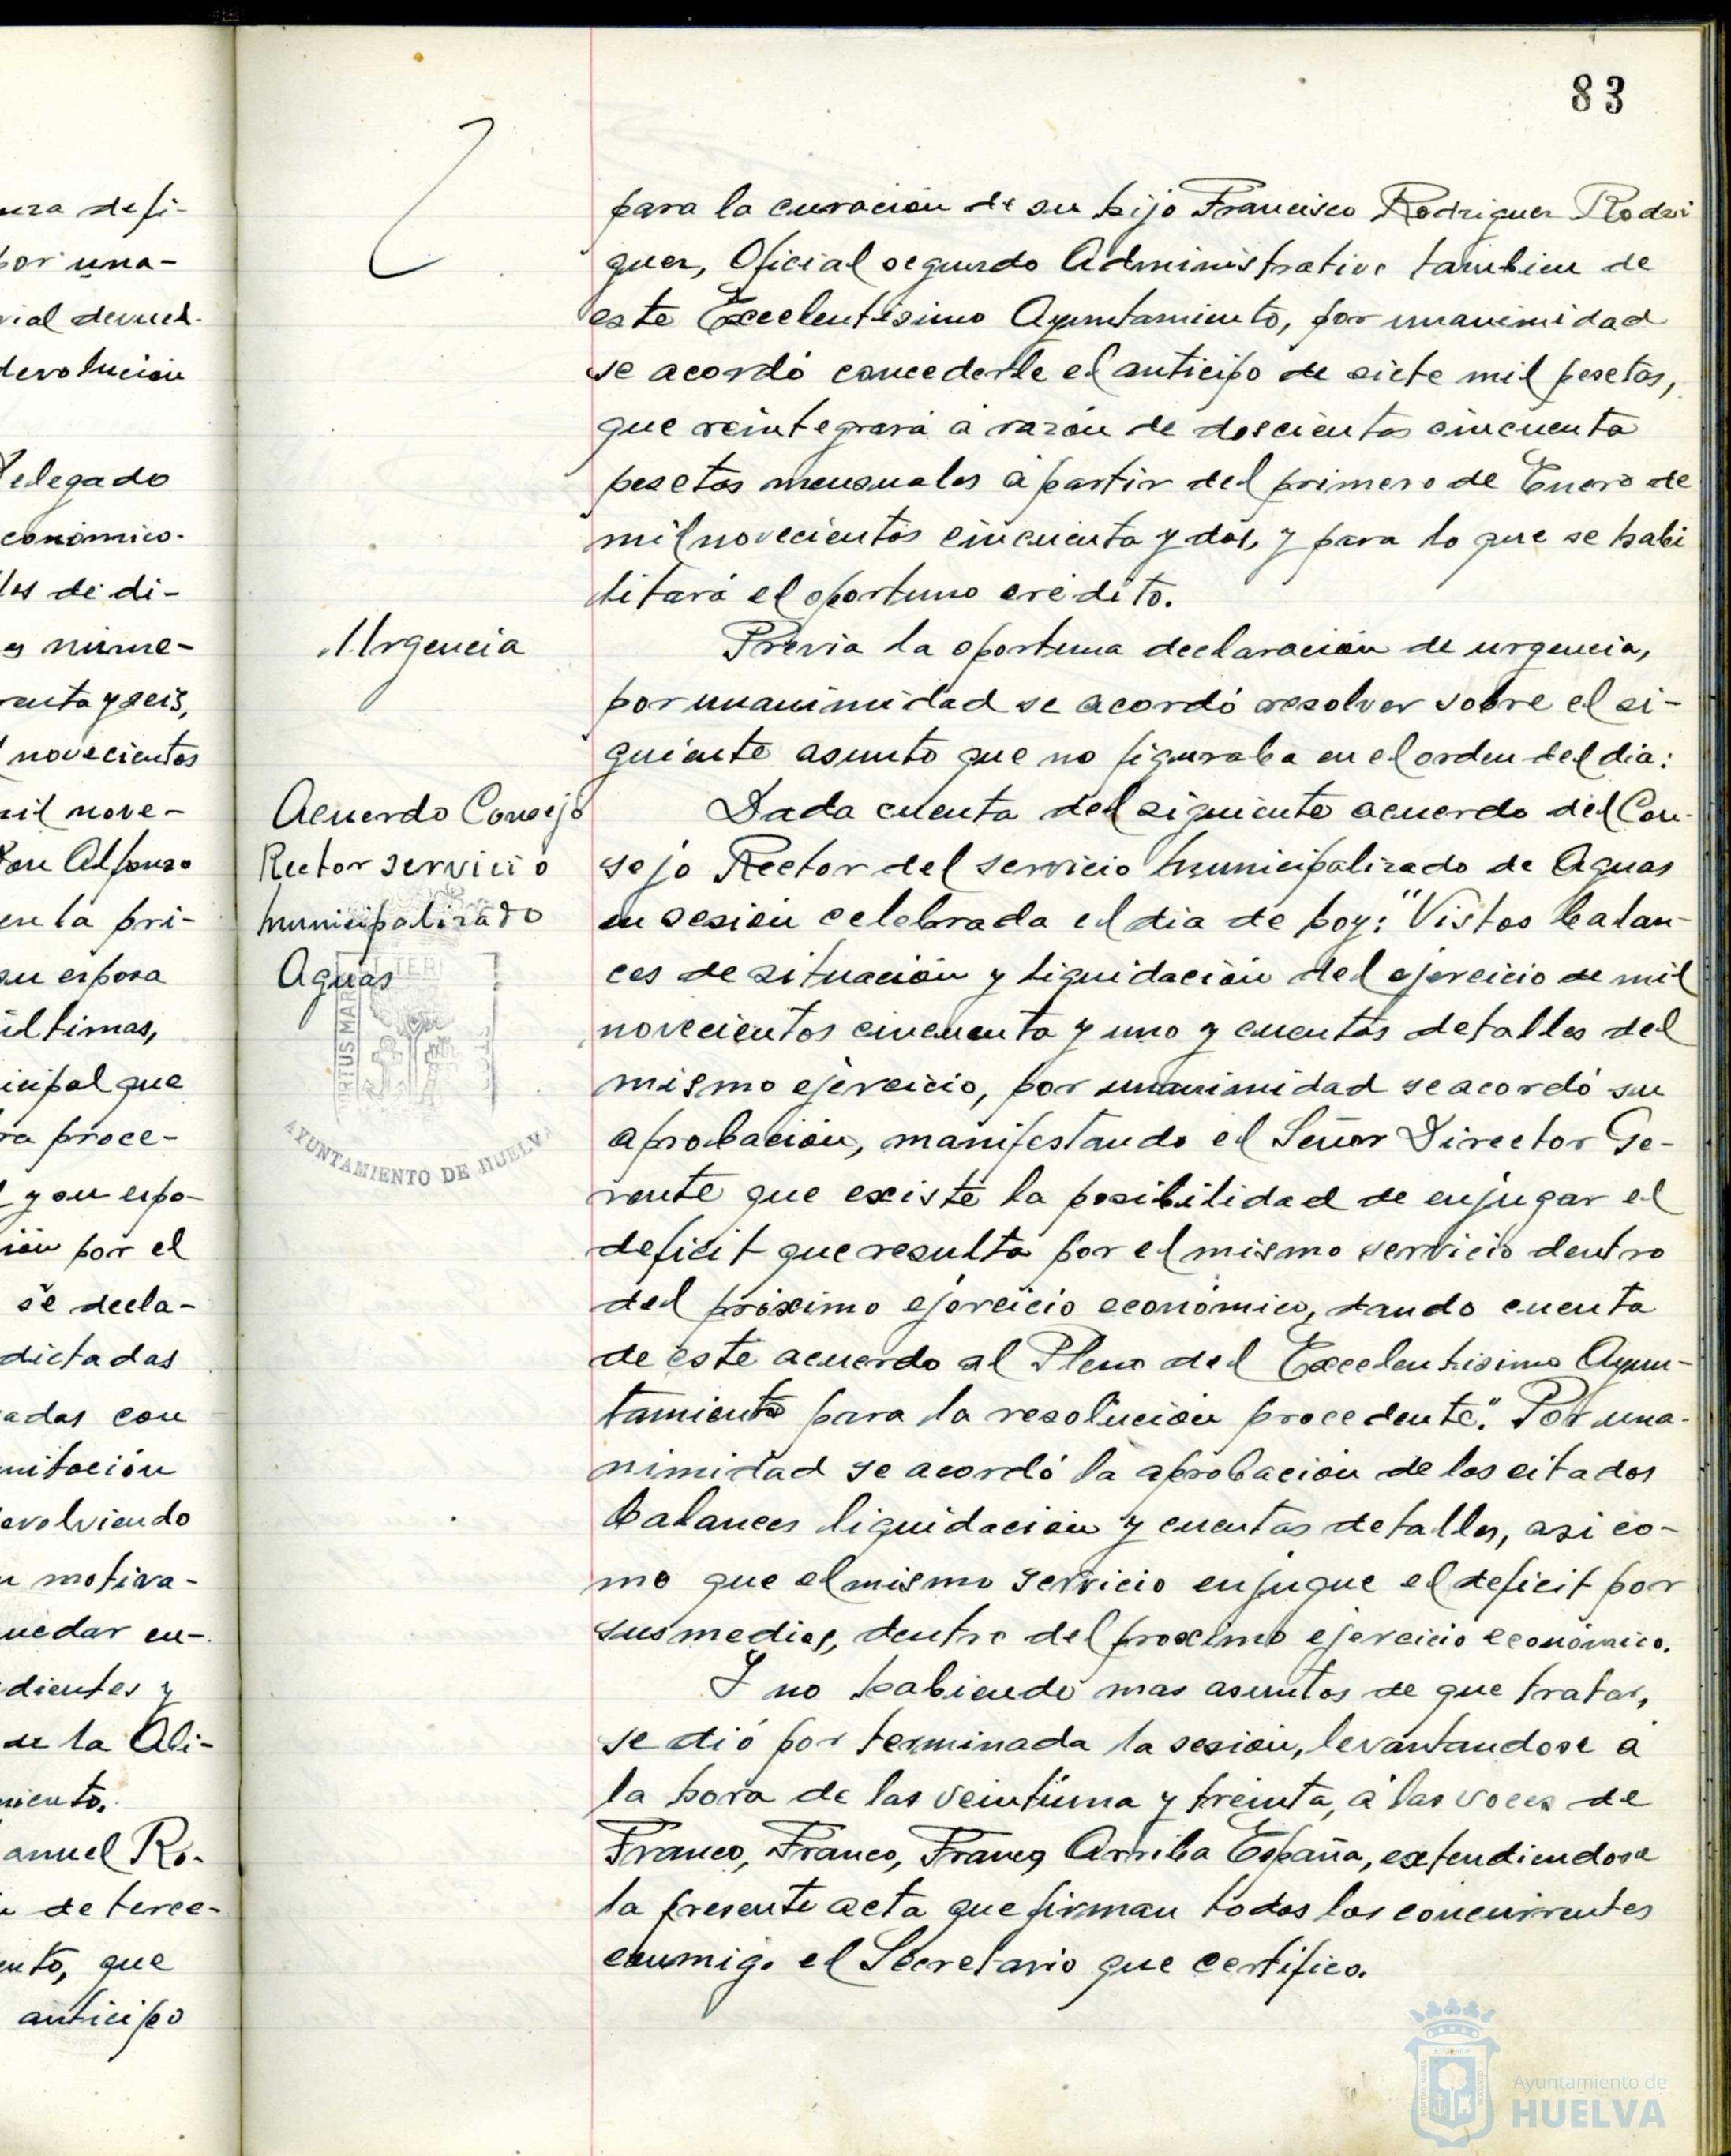 83
para la curación de su hijo Francisco Rodriguez Rodri
guez, Oficial segundo Administrativo tambien de
este Excelentisimo Ayuntamiento, por unanimidad
se acordó concederle el anticipo de siete mil pesetas,
que reintegrará á razón de doscientas cincuenta
pesetas mensuales á partir del primero de Enero de
mil novecientos cincuenta y dos, y para lo que se habi
litará el oportuno crédito.
Urgencia
Previa la oportuna declaración de urgencia,
por unanimidad se acordó resolver sobre el si-
guiente asunto que no figuraba en el orden del dia:
Acuerdo Consejo
Rector servicio
municipalizado
Aguas
Dada cuenta del siguiente acuerdo del Con-
sejo Rector del servicio municipalizado de Aguas
en sesión celebrada el dia de hoy: "Vistos balan-
ces de situación y liquidación del ejercicio de mil
novecientos cincuenta y uno y cuentas detalles del
mismo ejercicio, por unanimidad se acordó su
aprobación, manifestando el Señor Director Ge-
rente que existe la posibilidad de enjugar el
deficit que resulta por el mismo servicio dentro
del próximo ejercicio económico, dando cuenta
de este acuerdo al Pleno del Excelentisimo Ayun-
tamiento para la resolución procedente". Por una-
nimidad se acordó la aprobación de los citados
balances liquidación y cuentas detalles, asi co-
mo que el mismo servicio enjugue el deficit por
sus medios, dentro del proximo ejercicio económico.
Y no habiendo mas asuntos de que tratar,
se dió por terminada la sesión, levantandose á
la hora de las veintiuna y treinta, á las voces de
Franco, Franco, Franco, Arriba España, extendiendose
la presente acta que firman todos los concurrentes
conmigo el Secretario que certifico.
AYUNTAMIENTO DE HUELVA
Ayuntamiento de
HUELVA
uza defi-
por una-
rial devuel-
devolución
Delegado
conómico.
los de di-
nume-
renta y seis,
novecientos
mil nove-
Don Alfonso
en la pri-
su esposa
últimas,
icipal que
ra proce-
y su espo-
ión por el
se decla-
dictadas
adas con
mitación
evolviendo
motiva-
uedar en-
dientes y
de la Ali-
miento.
anuel Ro-
de terce-
ento, que
anticipo